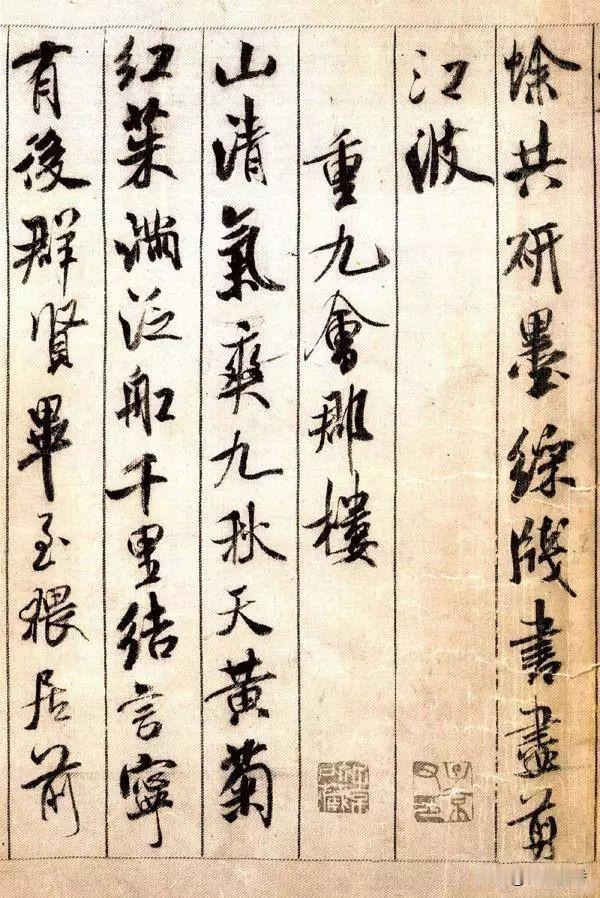 馀共研墨綵牋書盡剪
江波
重九會郡樓
山清氣爽九秋天黃菊
紅茱滿泛船千里結言寧
有後群賢畢至猥居前